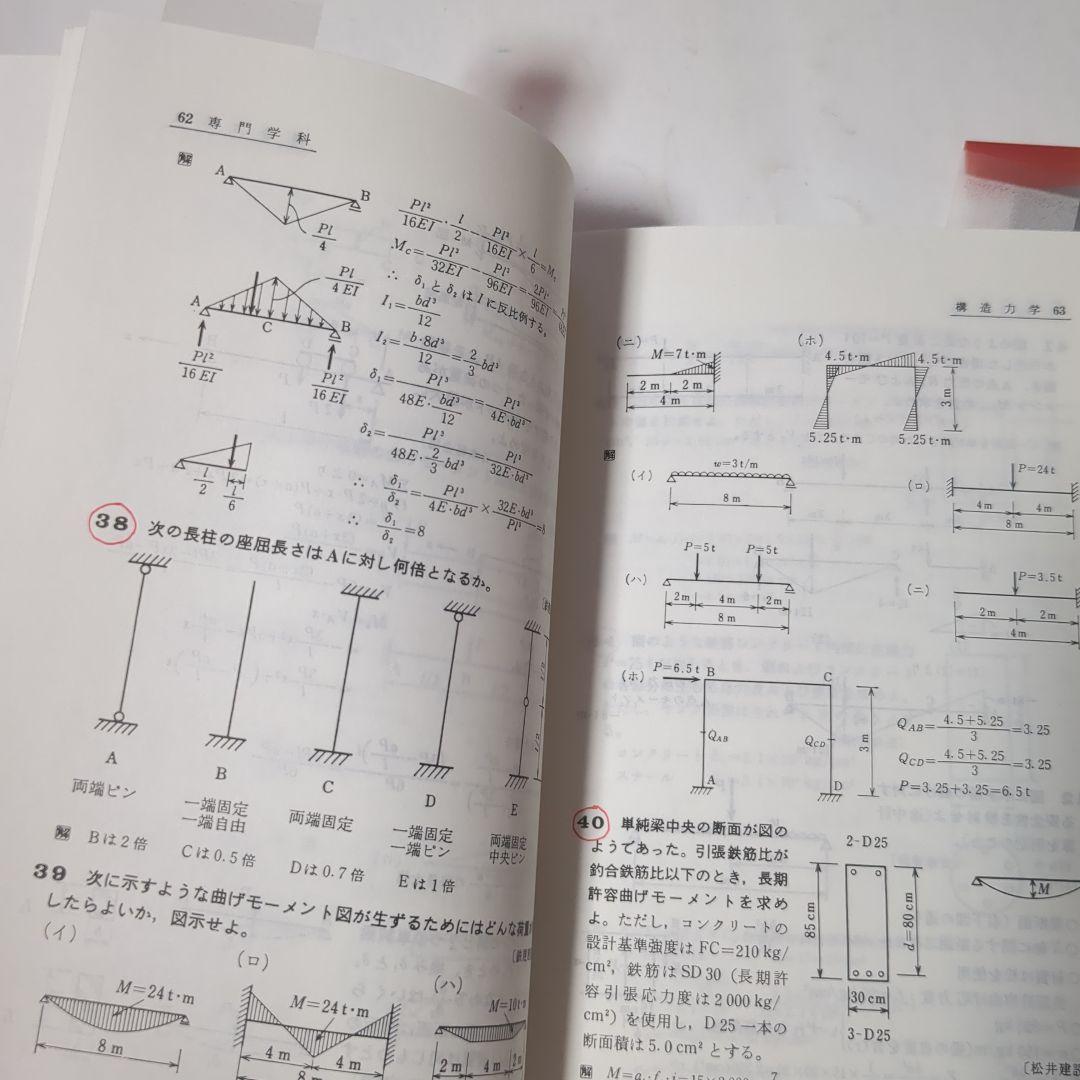 62 専門学科
解
A
B
Pl/4
Pl²/16EI · l/2 − Pl²/16EI × l/6 = M
M_C = Pl³/32EI − Pl³/96EI = 2Pl³/96EI
∴ δ₁とδ₂はIに反比例する。
A
C
B
Pl/4EI
Pl²/16EI
Pl²/16EI
I₁ = bd³/12
I₂ = b·8d³/12 = 2/3 bd³
δ₁ = Pl³/48E·bd³/12 = Pl³/4E·bd³
δ₂ = Pl³/48E·2/3 bd³ = Pl³/32E·bd³
l/2
l/6
∴ δ₁/δ₂ = Pl³/4E·bd³ × 32E·bd³/Pl³ = 8
∴ δ₁/δ₂ = 8
38 次の長柱の座屈長さはAに対し何倍となるか。
A
B
C
D
E
両端ピン
一端固定
一端自由
両端固定
一端固定
一端ピン
両端固定
中央ピン
解 Bは2倍 Cは0.5倍 Dは0.7倍 Eは1倍
39 次に示すような曲げモーメント図が生ずるためにはどんな荷重
したらよいか，図示せよ。
(イ)
M=24t·m
8m
(ロ)
M=24t·m
4m
4m
(ハ)
M=10t·m
2m
4m
2m
構造力学 63
(ニ)
M=7t·m
2m
2m
4m
(ホ)
4.5t·m
4.5t·m
3m
5.25t·m
5.25t·m
解
(イ)
w=3t/m
8m
(ロ)
P=24t
4m
4m
8m
(ハ)
P=5t
P=5t
2m
4m
2m
8m
(ニ)
P=3.5t
2m
2m
4m
(ホ)
P=6.5t
B
C
Q_AB
Q_CD
A
D
3m
Q_AB = 4.5+5.25/3 = 3.25
Q_CD = 4.5+5.25/3 = 3.25
P=3.25+3.25=6.5t
40 単純梁中央の断面が図の
ようであった。引張鉄筋比が
釣合鉄筋比以下のとき，長期
許容曲げモーメントを求め
よ。ただし，コンクリートの
設計基準強度はFC=210kg/
cm²，鉄筋はSD30（長期許
容引張応力度は2000kg/
cm²）を使用し，D25一本の
断面積は5.0cm²とする。
2-D25
85cm
d=80cm
30cm
3-D25
M
〔松井建設
解